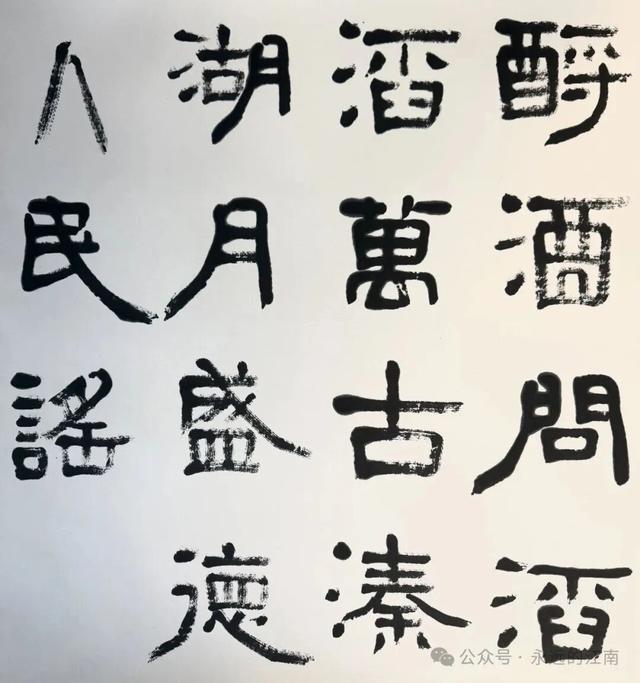 酹酒問滔
滔萬古溱
湖月盛德
人民謠
公众号 · 永远的江南